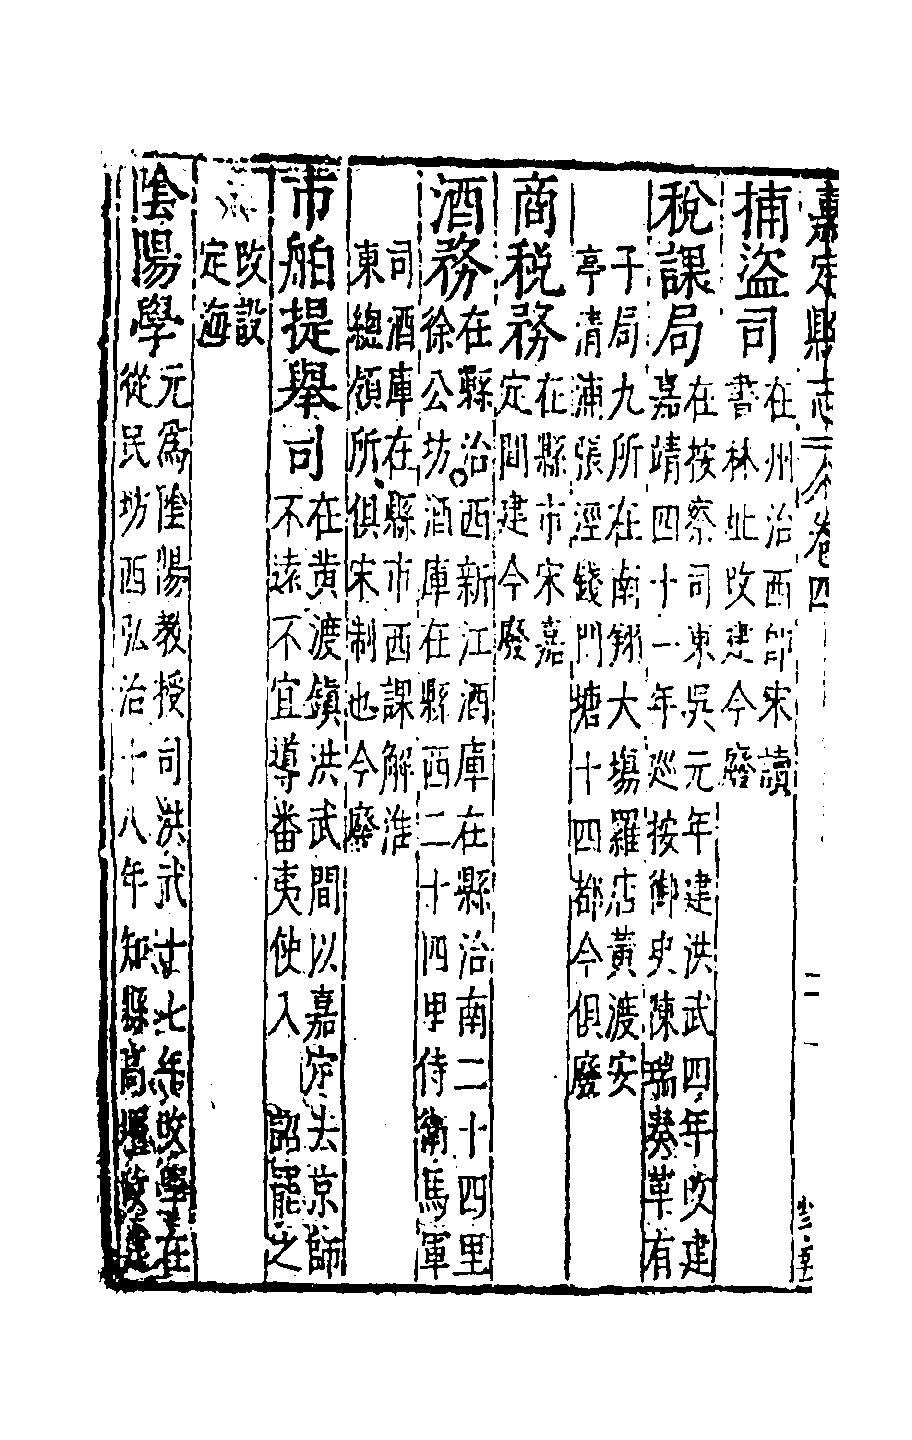 嘉定縣志 卷四
捕盜司在州治西即宋讀
書林址改建今廢
稅課局在按察司東吳元年建洪武四年改建
嘉靖四十一年巡按御史陳瑞奏革有
子局九所在南翔大場羅店黃渡安
亭清浦張涇錢門塘十四都今俱廢
商稅務在縣市宋嘉
定間建今廢
酒務在縣治西新江酒庫在縣治南二十四里
徐公坊酒庫在縣西二十四里侍衛馬軍
司酒庫在縣市西課解淮
東總領所俱宋制也今廢
市舶提舉司在黃渡鎮洪武間以嘉定去京師
不遠不宜導番夷使入 詔罷之
改設
定海
陰陽學元爲陰陽教授司洪武十七年改學在
從民坊西弘治十八年知縣高 改建